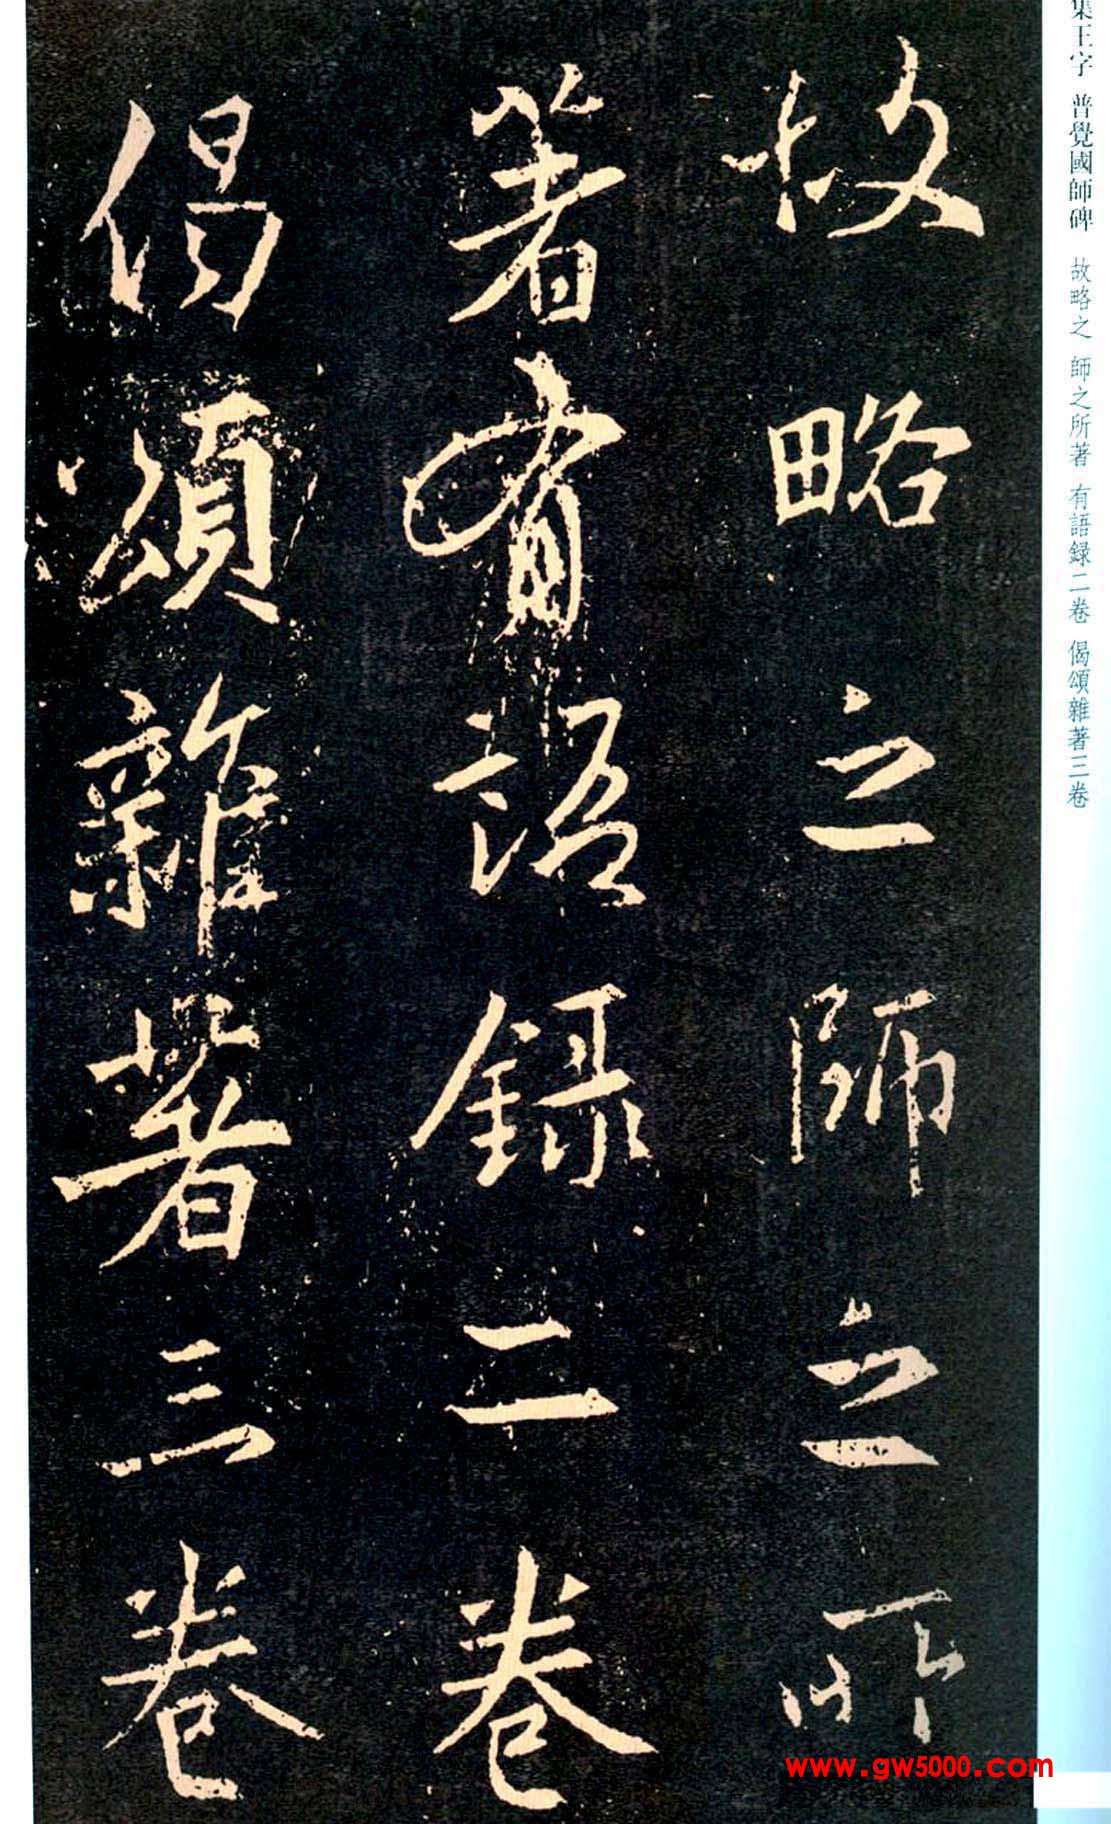 集王字 普覺國師碑 故略之 師之所著 有語録二卷 偈頌雜著三卷
故略之師之所
著有語録二卷
偈頌雜著三卷
www.gw5000.com